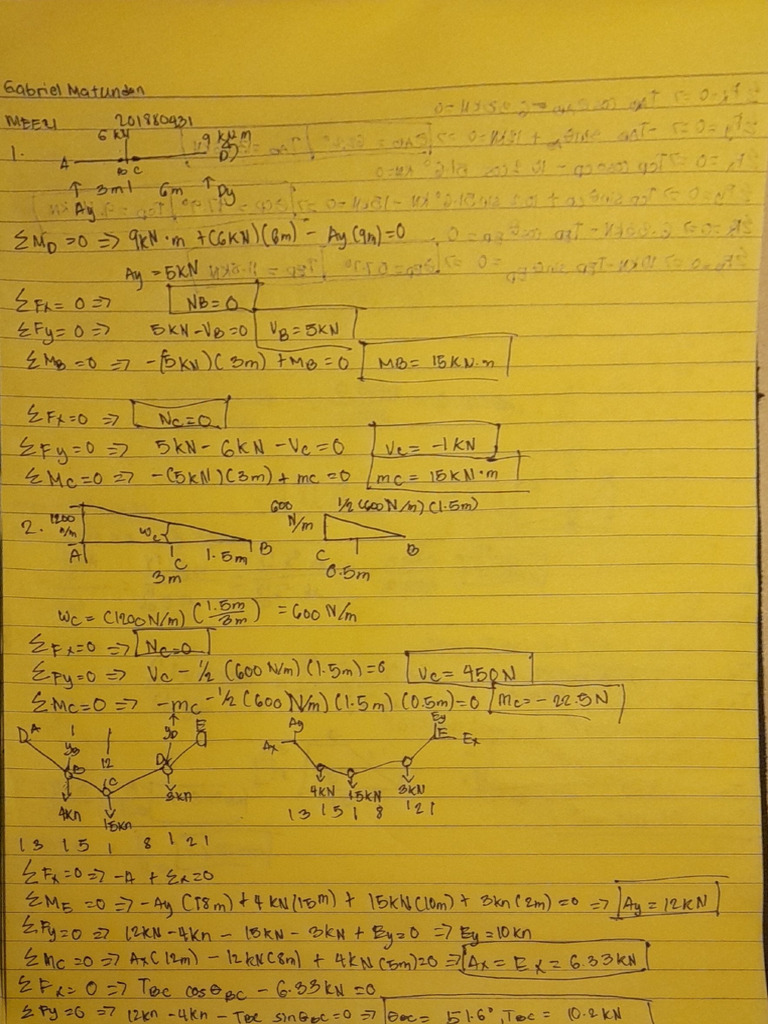 Gabriel Matunden
MEE21 201880931
6 kN 9 kN m
1. A B C D
3m 6m
Ay Dy
ΣMD =0 => 9kN·m + (6KN)(6m) - Ay (9m)=0
Ay = 5KN
ΣFx= 0 => NB=0
ΣFy= 0 => 5KN-VB=0 VB=5KN
ΣMB=0 => -(5KN)(3m) +MB=0 MB= 15KN·m
ΣFx=0 => Nc=0
ΣFy=0 => 5KN- 6KN -Vc=0 Vc= -1KN
ΣMc=0 => -(5KN)(3m)+ mc=0 mc= 15KN·m
600 1/2 (600 N/m) (1.5m)
2. 1200 N/m wc N/m
A C 1.5m B C B
3m 0.5m
wc= (1200N/m) (1.5m/3m) = 600 N/m
ΣFx=0 => Nc=0
ΣFy=0 => Vc - 1/2 (600N/m)(1.5m)=0 Vc= 450N
ΣMc=0 => -mc -1/2(600N/m)(1.5m)(0.5m)=0 mc= -22.5N
A E Ay Ey
Ax E Ex
12
B C D
4kn 15kn 3kn 4KN 15KN 3KN
13 15 1 8 121 13 15 1 8 121
ΣFx=0 => -A + Ex=0
ΣME =0 => -Ay (18m)+4 KN(15m) + 15KN(10m) + 3kn(2m)=0 => Ay=12KN
ΣFy=0 => 12KN-4Kn - 15KN - 3KN + Ey=0 => Ey=10kn
ΣMc =0 => Ax(12m) -12KN(8m) + 4KN(5m)=0 => Ax= Ex= 6.33KN
ΣFx= 0 => TBC cosθBC - 6.33KN=0
ΣFy=0 => 12kn -4Kn - TBC sinθBC=0 => θBC= 51.6°, TBC= 10.2KN